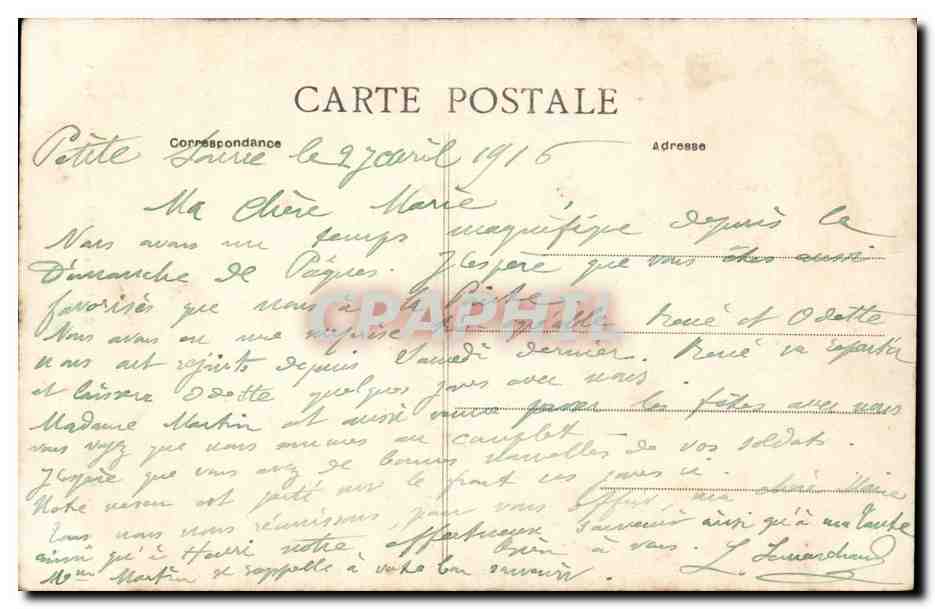 CARTE POSTALE
Correspondance
Adresse
Petite le 27 avril 1916
Ma chère Marie,
Nous avons un temps magnifique depuis le
Dimanche de Pâques. J'espère que vous êtes aussi
favorisés que nous à
CPAPHIL
Nous avons eu une surprise René et Odette
nous ont rejoints depuis Samedi dernier. René va repartir
et laissera Odette quelques jours avec nous.
Madame Martin est aussi venue passer les fêtes avec nous
vous voyez que nous sommes au complet.
J'espère que vous avez de bonnes nouvelles de vos soldats.
Notre est parti sur le front ces jours ci.
Tous nous nous réunissons, pour vous offrir ma chère Marie
ainsi qu'à Henri notre affectueux souvenir ainsi qu'à ma tante
bien à vous. L. Lemarchand
Mme Martin se rappelle à votre bon souvenir.